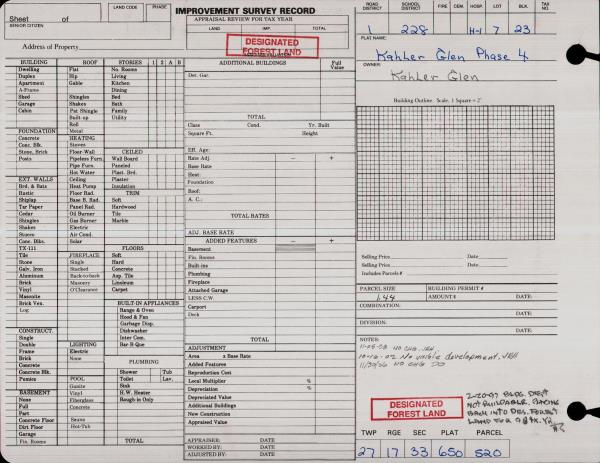 IMPROVEMENT SURVEY RECORD
Sheet of
SENIOR CITIZEN
LAND CODE PHASE
APPRAISAL REVIEW FOR TAX YEAR
LAND IMP. TOTAL
DESIGNATED
FOREST LAND
Address of Property
ROAD DISTRICT SCHOOL DISTRICT FIRE CEM. HOSP. LOT BLK. TAX NO.
1 228 H-1 7 23
PLAT NAME:
Kahler Glen Phase 4
OWNER:
Kahler Glen
BUILDING ROOF STORIES 1 2 A B
Dwelling Flat No. Rooms
Duplex Hip Living
Apartment Gable Kitchen
A-Frame Dining
Shed Shingles Bed
Garage Shakes Bath
Cabin Pat Shingle Family
Built-up Utility
Roll
FOUNDATION Metal
Concrete HEATING
Conc. Blk. Stoves CEILED
Stone, Brick Floor-Wall Wall Board
Posts Pipeless Furn. Paneled
Pipe Furn. Plast. Brd.
Hot Water Plaster
EXT. WALLS Ceiling Insulation
Brd. & Bats Heat Pump TRIM
Rustic Floor Rad. Soft
Shiplap Base B. Rad. Hardwood
Tar Paper Panel Rad. Tile
Cedar Oil Burner Marble
Shingles Gas Burner
Shakes Electric
Stucco Air Cond.
Conc. Blks. Solar FLOORS
TX-111 Soft
Tile FIREPLACE Hard
Stone Single Concrete
Galv. Iron Stacked Asp. Tile
Aluminum Back-to-back Linoleum
Brick Masonry Carpet
Vinyl O'Clearance
Masonite
Brick Ven. BUILT-IN APPLIANCES
Log Range & Oven
Hood & Fan
Garbage Disp.
CONSTRUCT. Dishwasher
Single Inter Com.
Double LIGHTING Bar-B-Que
Frame Electric
Brick None PLUMBING
Concrete Shower Tub
Concrete Blk. Toilet Lav.
Pumice POOL Sink
Gunite H.W. Heater
BASEMENT Vinyl Rough-in Only
None Fiberglass
Full Concrete
Part
Concrete Floor Sauna
Dirt Floor Hot-Tub
Garage
Fin. Rooms TOTAL
ADDITIONAL BUILDINGS Full Value
Det. Gar.
TOTAL
Class Cond. Yr. Built
Square Ft. Height
Eff. Age:
Rate Adj. — +
Base Rate
Heat:
Foundation
Roof:
A. C.:
TOTAL RATES
ADJ. BASE RATE
ADDED FEATURES — +
Basement
Fin. Rooms
Built-ins
Plumbing
Fireplace
Attached Garage
LESS C.W.
Carport
Deck
TOTAL
ADJUSTMENT
Area x Base Rate
Added Features
Reproduction Cost
Local Multiplier %
Depreciation %
Depreciated Value
Additional Buildings
New Construction
Appraised Value
APPRAISER: DATE
WORKED BY: DATE
ADJUSTED BY: DATE
Building Outline. Scale, 1 Square = 2'
Selling Price Date
Selling Price Date
Includes Parcels #
PARCEL SIZE BUILDING PERMIT #
1.44 AMOUNT $ DATE:
COMBINATION:
DATE:
DIVISION:
DATE:
NOTES:
NO CHG
10-16-02 No visible development.
11/30/06 NO CHG DO
2-20-97 BLDG. DEPT
NOT BUILDABLE. GOING
BACK INTO DES. FOREST
DESIGNATED
FOREST LAND
TWP RGE SEC PLAT PARCEL
27 17 33 650 520